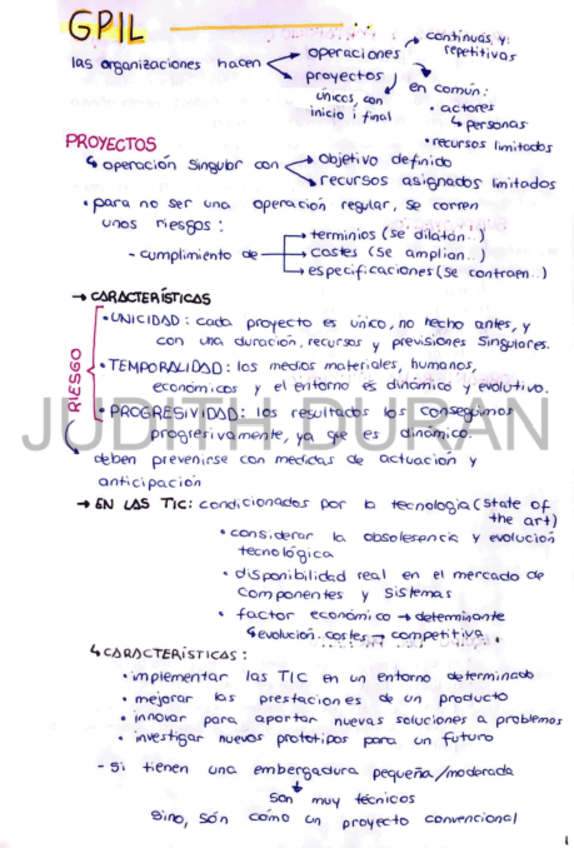 GPIL
las organizaciones hacen
operaciones
continuas y
repetitivas
proyectos
únicos, con
inicio i final
en común:
• actores
personas
• recursos limitados
PROYECTOS
operación singular con
objetivo definido
recursos asignados limitados
• para no ser una operación regular, se corren
unos riesgos:
- cumplimiento de
terminios (se dilatan..)
costes (se amplian..)
especificaciones (se contraen..)
→ CARACTERÍSTICAS
RIESGO
• UNICIDAD: cada proyecto es único, no hecho antes, y
con una duración, recursos y previsiones singulares.
• TEMPORALIDAD: los medios materiales, humanos,
económicos y el entorno es dinámico y evolutivo.
• PROGRESIVIDAD: los resultados los conseguimos
progresivamente, ya que es dinámico.
JUDITH DURAN
deben prevenirse con medidas de actuación y
anticipación
→ EN LAS TIC: condicionados por la tecnologia (state of
the art)
• considerar la obsolesencia y evolución
tecnológica
• disponibilidad real en el mercado de
componentes y sistemas
• factor económico → determinante
evolución costes → competitiva.
CARACTERÍSTICAS:
• implementar las TIC en un entorno determinado
• mejorar las prestaciones de un producto
• innovar para aportar nuevas soluciones a problemas
• investigar nuevos prototipos para un futuro
- Si tienen una embergadura pequeña/moderada
son muy técnicos
sino, són como un proyecto convencional
1